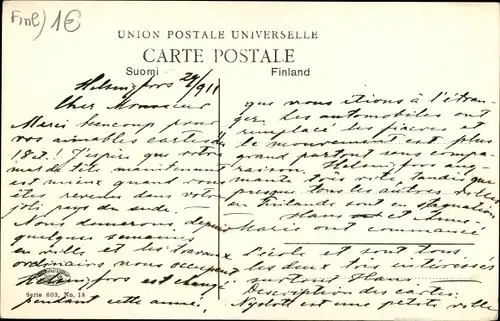 Finl) 1€
UNION POSTALE UNIVERSELLE
CARTE POSTALE
Suomi Finland
Helsingfors 29/9 11
Cher Monsieur
Merci beaucoup pour
vos aimables cartes du
18 ct. J'espère que votre
mal de tête maintenant
est mieux quand vous
êtes revenu dans votre
joli pays de sude.
Nous demeurons depuis
quelques semaines
en ville et les travaux
ordinaires nous occupent
Helsingfors est changé
pendant cette année.
Serie 603, No. 18
que nous étions à l'étran-
ger, les automobiles ont
remplacé les fiacres et
le mouvement est plus
grand partout sans compa-
raison. Helsingfors aug-
mente très vite tandis que
presque tous les autres villes
en Finlande sont en stagnation
Hans et
Marie ont commencé
l'école et sont tous
les deux très intéressés
surtout Hans.
Description des cartes:
Nyslott est une petite ville